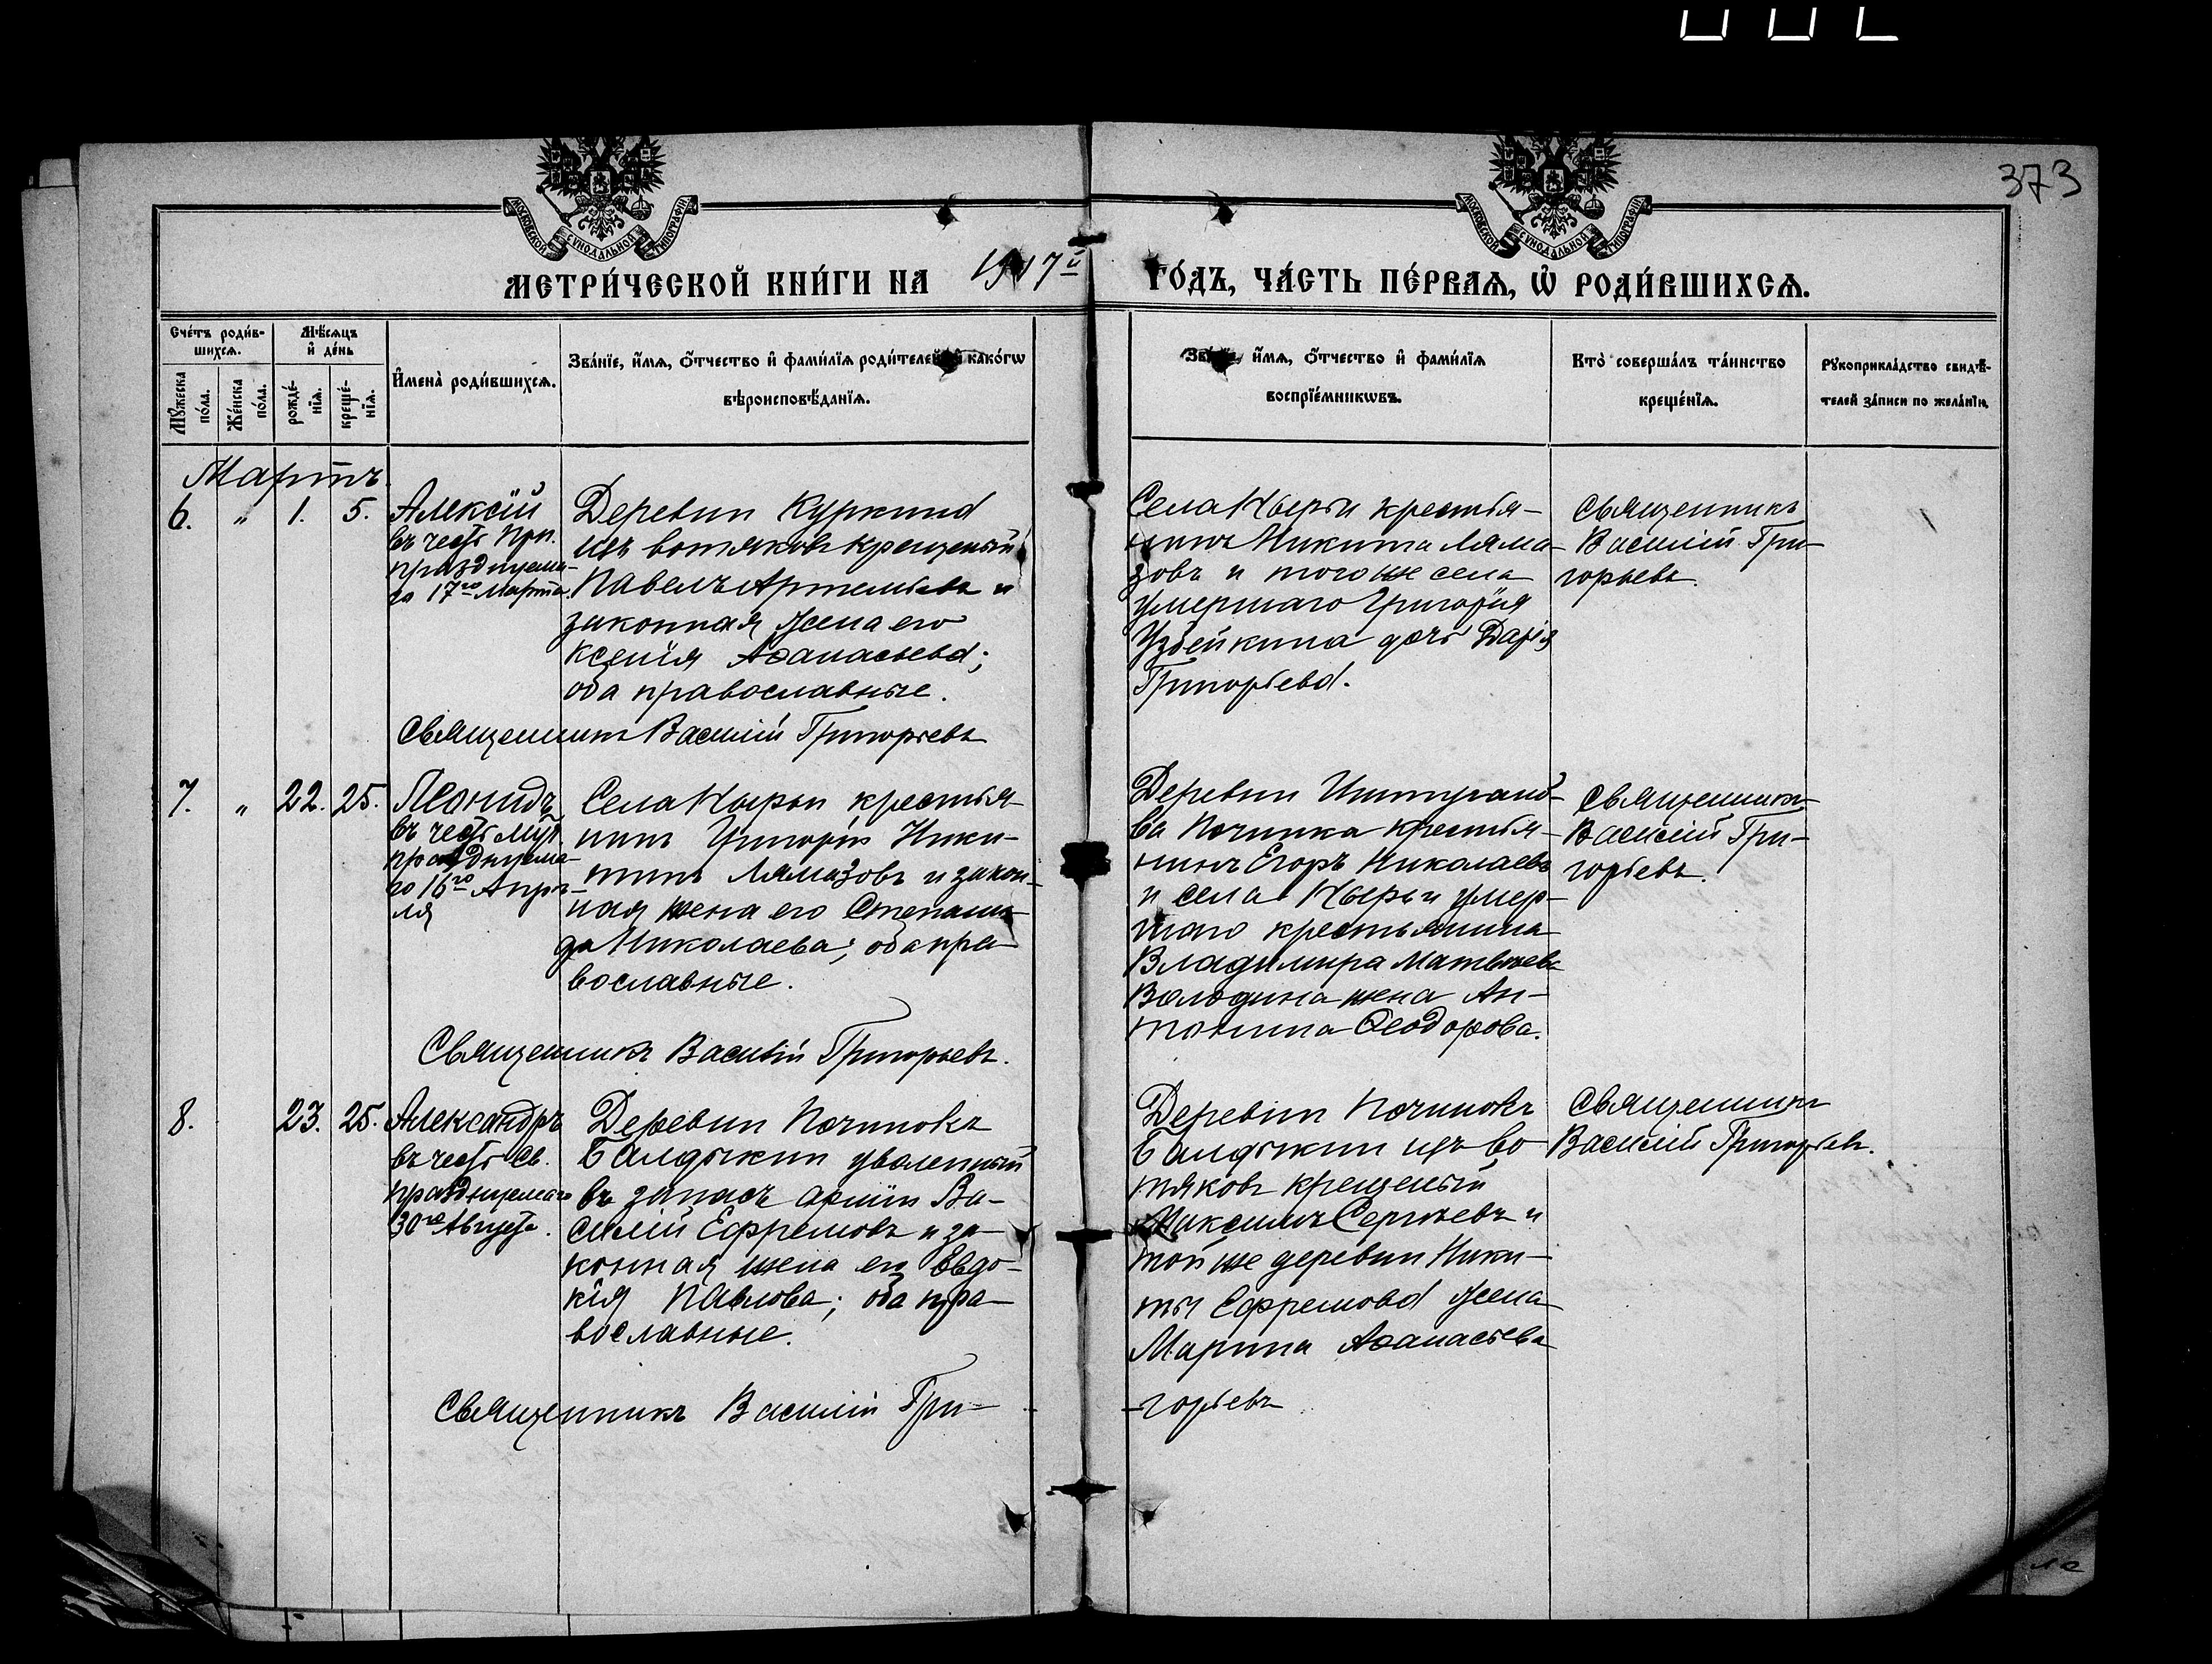 373
МОСКОВСКОЙ СУНОДАЛЬНОЙ ТИПОГРАФІИ
МОСКОВСКОЙ СУНОДАЛЬНОЙ ТИПОГРАФІИ
МЕТРИ́ЧЕСКОЙ КНИ́ГИ НА 1917й ГО́ДЪ, ЧА́СТЬ ПЕ́РВАѦ, Ѡ҆ РОДИ́ВШИХСѦ.
Сче́тъ роди́в-
шихсѧ.
Мѣ́сѧцъ
и҆ де́нь
Мꙋ́жеска
по́ла.
Же́нска
по́ла.
рожде́-
нїѧ.
креще́-
нїѧ.
И҆мена̀ роди́вшихсѧ.
Зва́нїе, и҆́мѧ, ѻ҆́тчество и҆ фами́лїѧ роди́телей, и҆ како́гѡ
вѣроисповѣ́данїѧ.
Зва́нїе, и҆́мѧ, ѻ҆́тчество и҆ фами́лїѧ
воспрїе́мникѡвъ.
Кто̀ соверша́лъ та́инство
креще́нїѧ.
Рꙋкоприкла́дство свидѣ́-
телей за́писи по жела́нїю.
Мартъ.
6. " 1. 5.
Алексій
въ честь Прп.
празднуема-
го 17го Марта.
Деревни Куркина
изъ вотяковъ крещеный
Павелъ Артемьевъ и
законная жена его
Ксенія Аѳанасьева;
оба православные.
Священникъ Василій Григорьевъ
Села Кырьи крестья-
нинъ Никита Ляма-
зовъ и того же села
умершаго Григорія
Узбейкина дочь Дарія
Григорьева.
Священникъ
Василій Гри-
горьевъ.
7. " 22. 25.
Леонидъ
въ честь Муч.
празднуема-
го 16го Апрѣ-
ля
Села Кырьи крестья-
нинъ Григорій Ники-
тинъ Лямазовъ и закон-
ная жена его Степани-
да Николаева; оба пра-
вославные.
Священникъ Василій Григорьевъ.
Деревни
Починка крестья-
нинъ Егоръ Николаевъ
и села Кырьи умер-
шаго крестьянина
Владимира Матвѣева
Володина жена Ан-
тонина Ѳеодорова.
Священникъ
Василій Гри-
горьевъ.
8. 23. 25.
Александръ
въ честь Св.
празднуемаго
30го Августа.
Деревни Починокъ
Балдыкии уволенный
въ запасъ арміи Ва-
силій Ефремовъ и за-
конная жена его Евдо-
кія Павлова; оба пра-
вославные.
Деревни Починокъ
Балдыкии изъ во-
тяковъ крещеный
Максимъ Сергѣевъ и
той же деревни Ники-
ты Ефремова жена
Марина Аѳанасьева
Священникъ
Василій Григорьевъ.
Священникъ Василій Гри-
-горьевъ